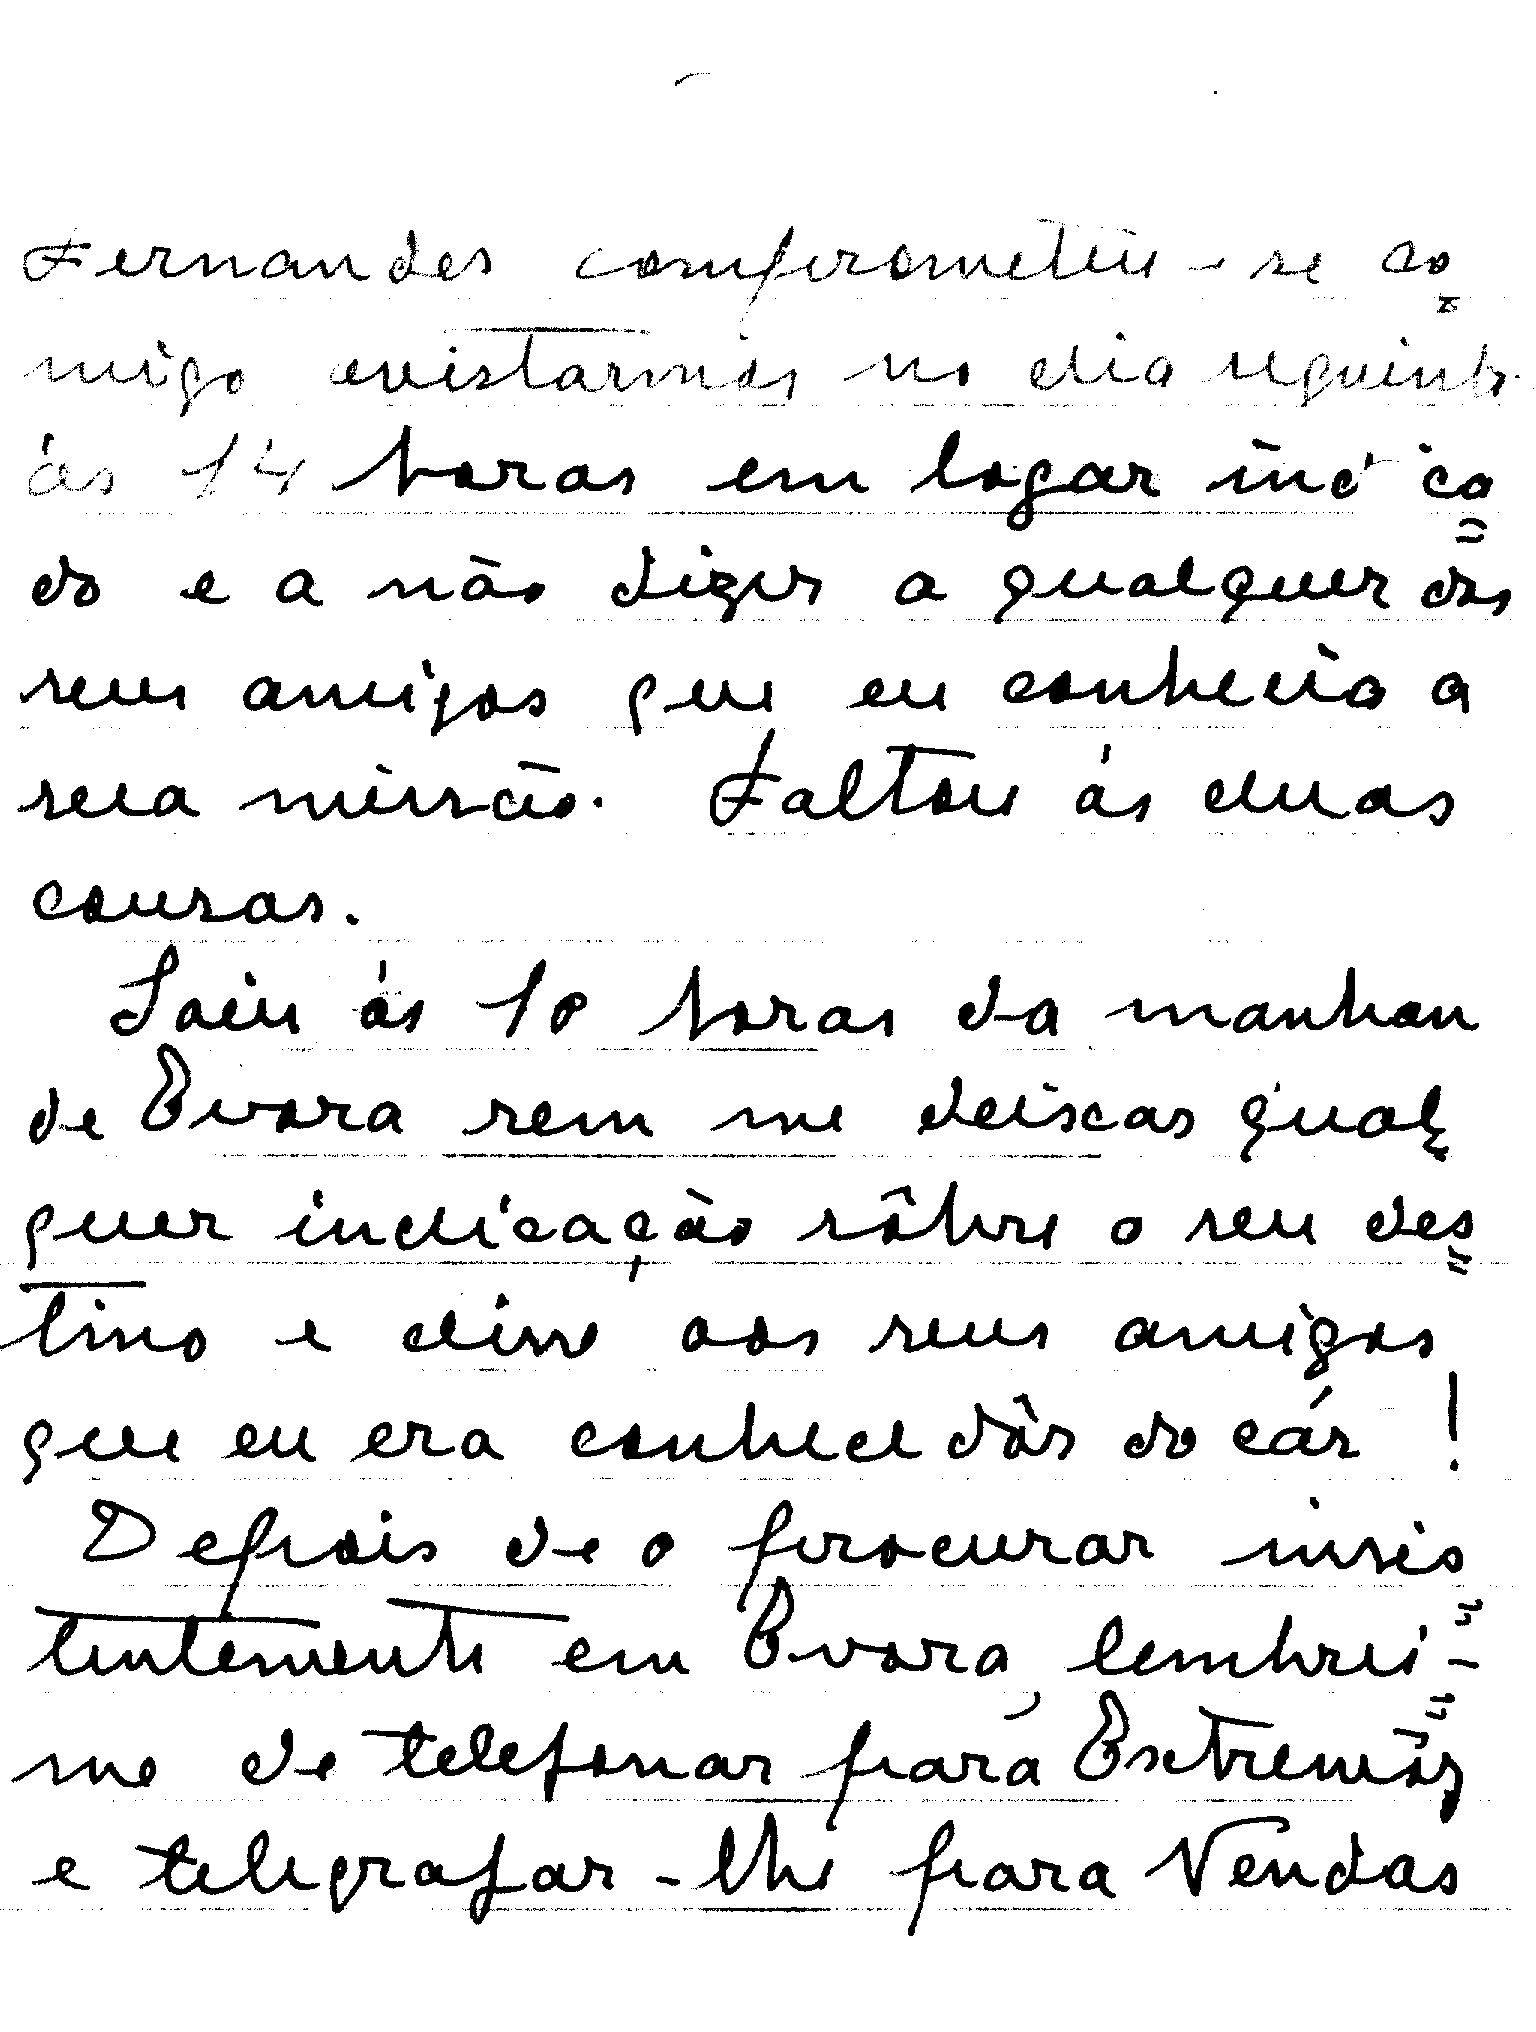 Fernandes comprometeu-se co=
migo avistarmos no dia seguinte
ás 14 horas em logar indica=
do e a não dizer a qualquer dos
seus amigos que eu conhecia a
sua missão. Faltou ás duas
cousas.
Saiu ás 10 horas da manhan
de Evora sem me deixar qual=
quer indicação sôbre o seu des=
tino e disse aos seus amigos
que eu era conhecedôr do cás !
Depois de o procurar insis=
tentemente em Evora, lembrei-
me de telefonar para Extremôz
e telegrafar-lhe para Vendas